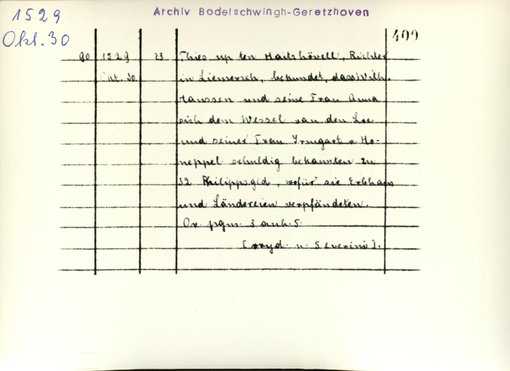 1529
Okt. 30
Archiv Bodelschwingh-Geretzhoven
409
90 1529 23 Thies up ten Hailshövell, Richter
Okt. 30 in Liemersch, bekundet, dass Wilh.
Janssen und seine Frau Anna
sich dem Wessel van den Loe
und seiner Frau Irmgart v. Ho-
neppel schuldig bekannten zu
32 Philippsgld., wofür sie Erbhaus
und Ländereien verpfändeten.
Or. pgm. 3 anh. S.
(cryd. n. Severini).